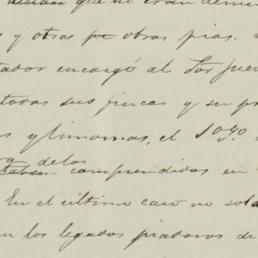 que no eran
s y otras obras pias.
tador encargó al Sor Juez
todas sus fincas y su pr
s y limosnas, el 10 30
de los
comprendidos en
En el ultimo caso no sol
n los legados piadosos de